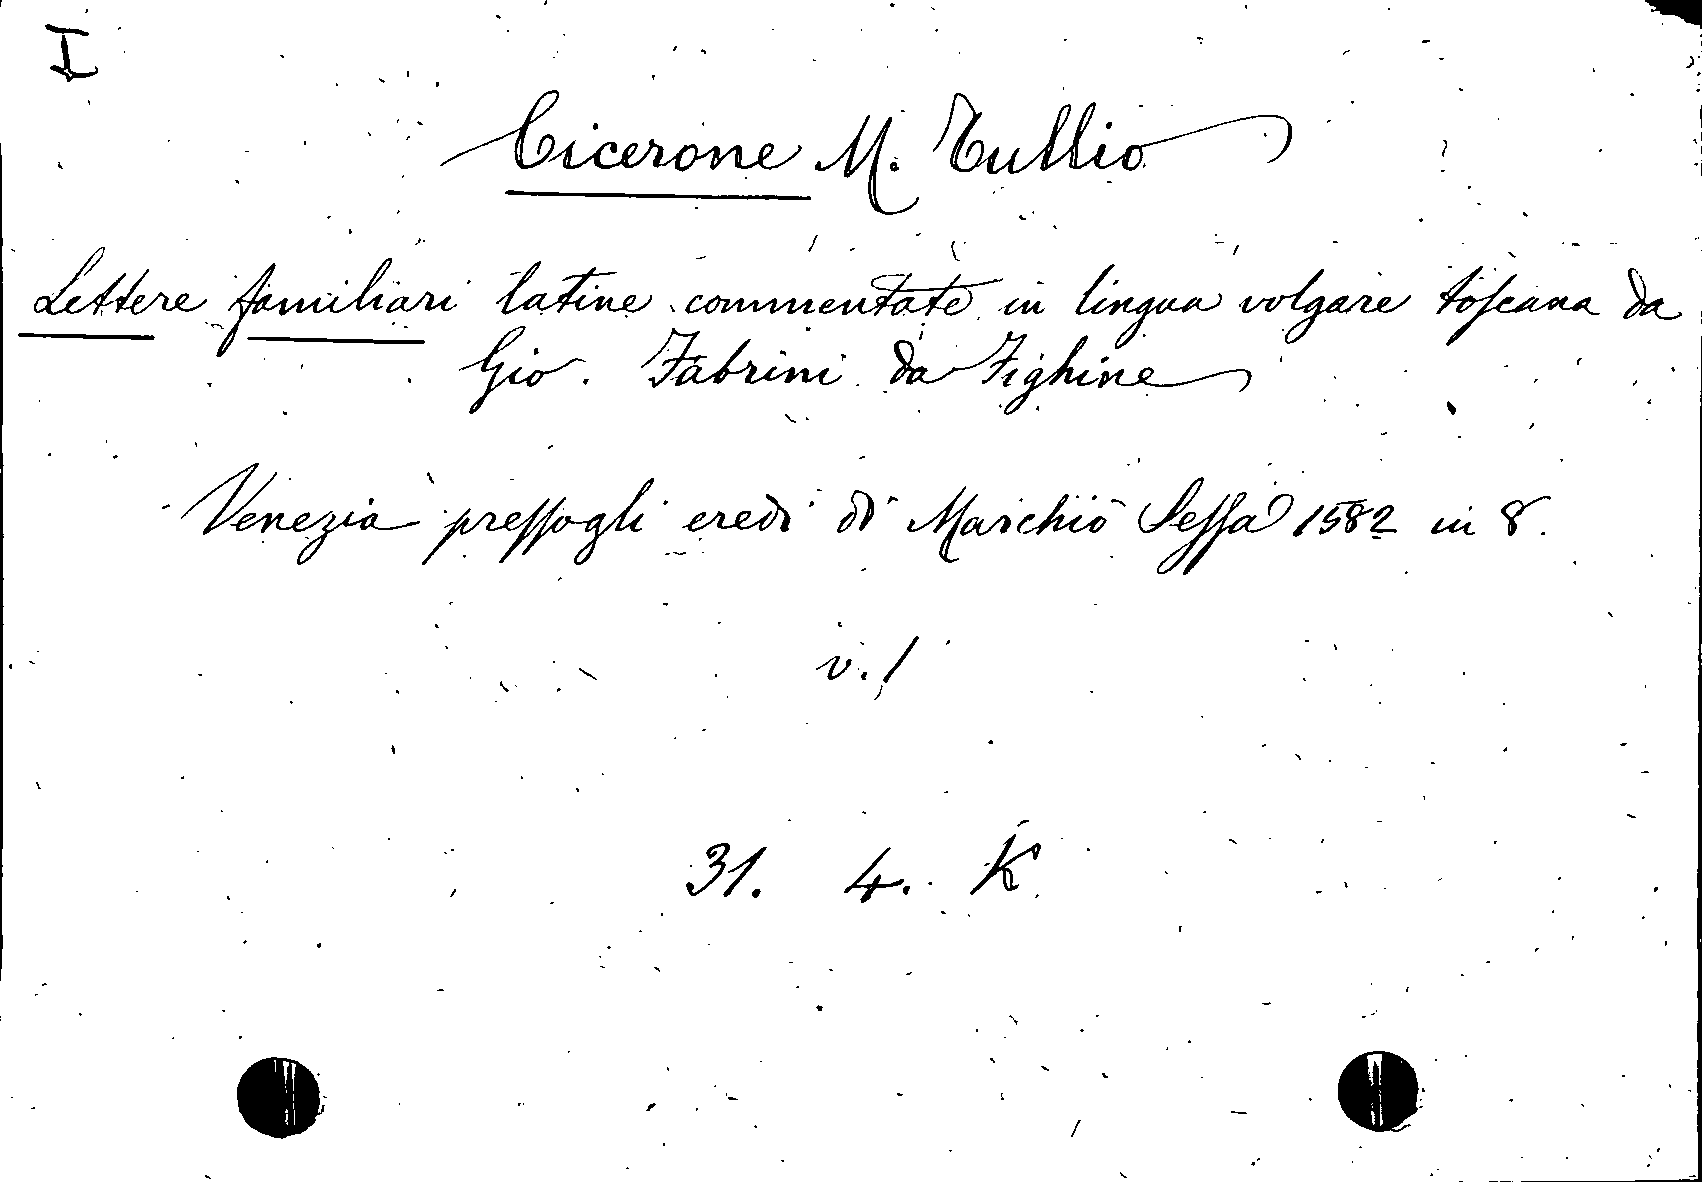 I
Cicerone M. Tullio
Lettere familiari latine commentate in lingua volgare toscana da
Gio. Fabrini da Fighine
Venezia pressogli eredi di Marchiò Sessa 1582 in 8.
v. 1
31. 4. K